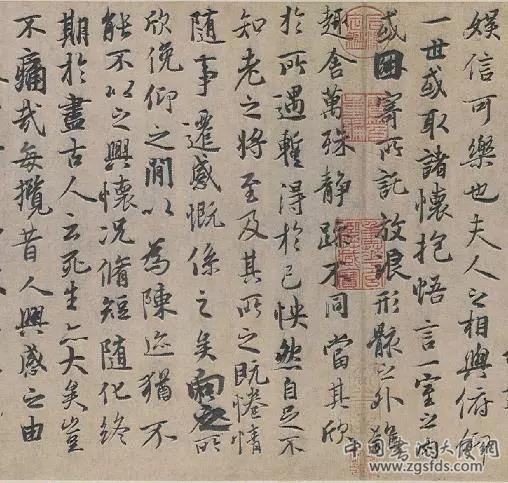 娛信可樂也夫人之相與俯仰
一世或取諸懷抱悟言一室之內
或因寄所託放浪形骸之外雖
趣舍萬殊靜躁不同當其欣
於所遇暫得於己怏然自足不
知老之將至及其所之既惓情
隨事遷感慨係之矣向之所
欣俛仰之閒以為陳迹猶不
能不以之興懷況脩短隨化終
期於盡古人云死生亦大矣豈
不痛哉每攬昔人興感之由
www.zgsfds.com